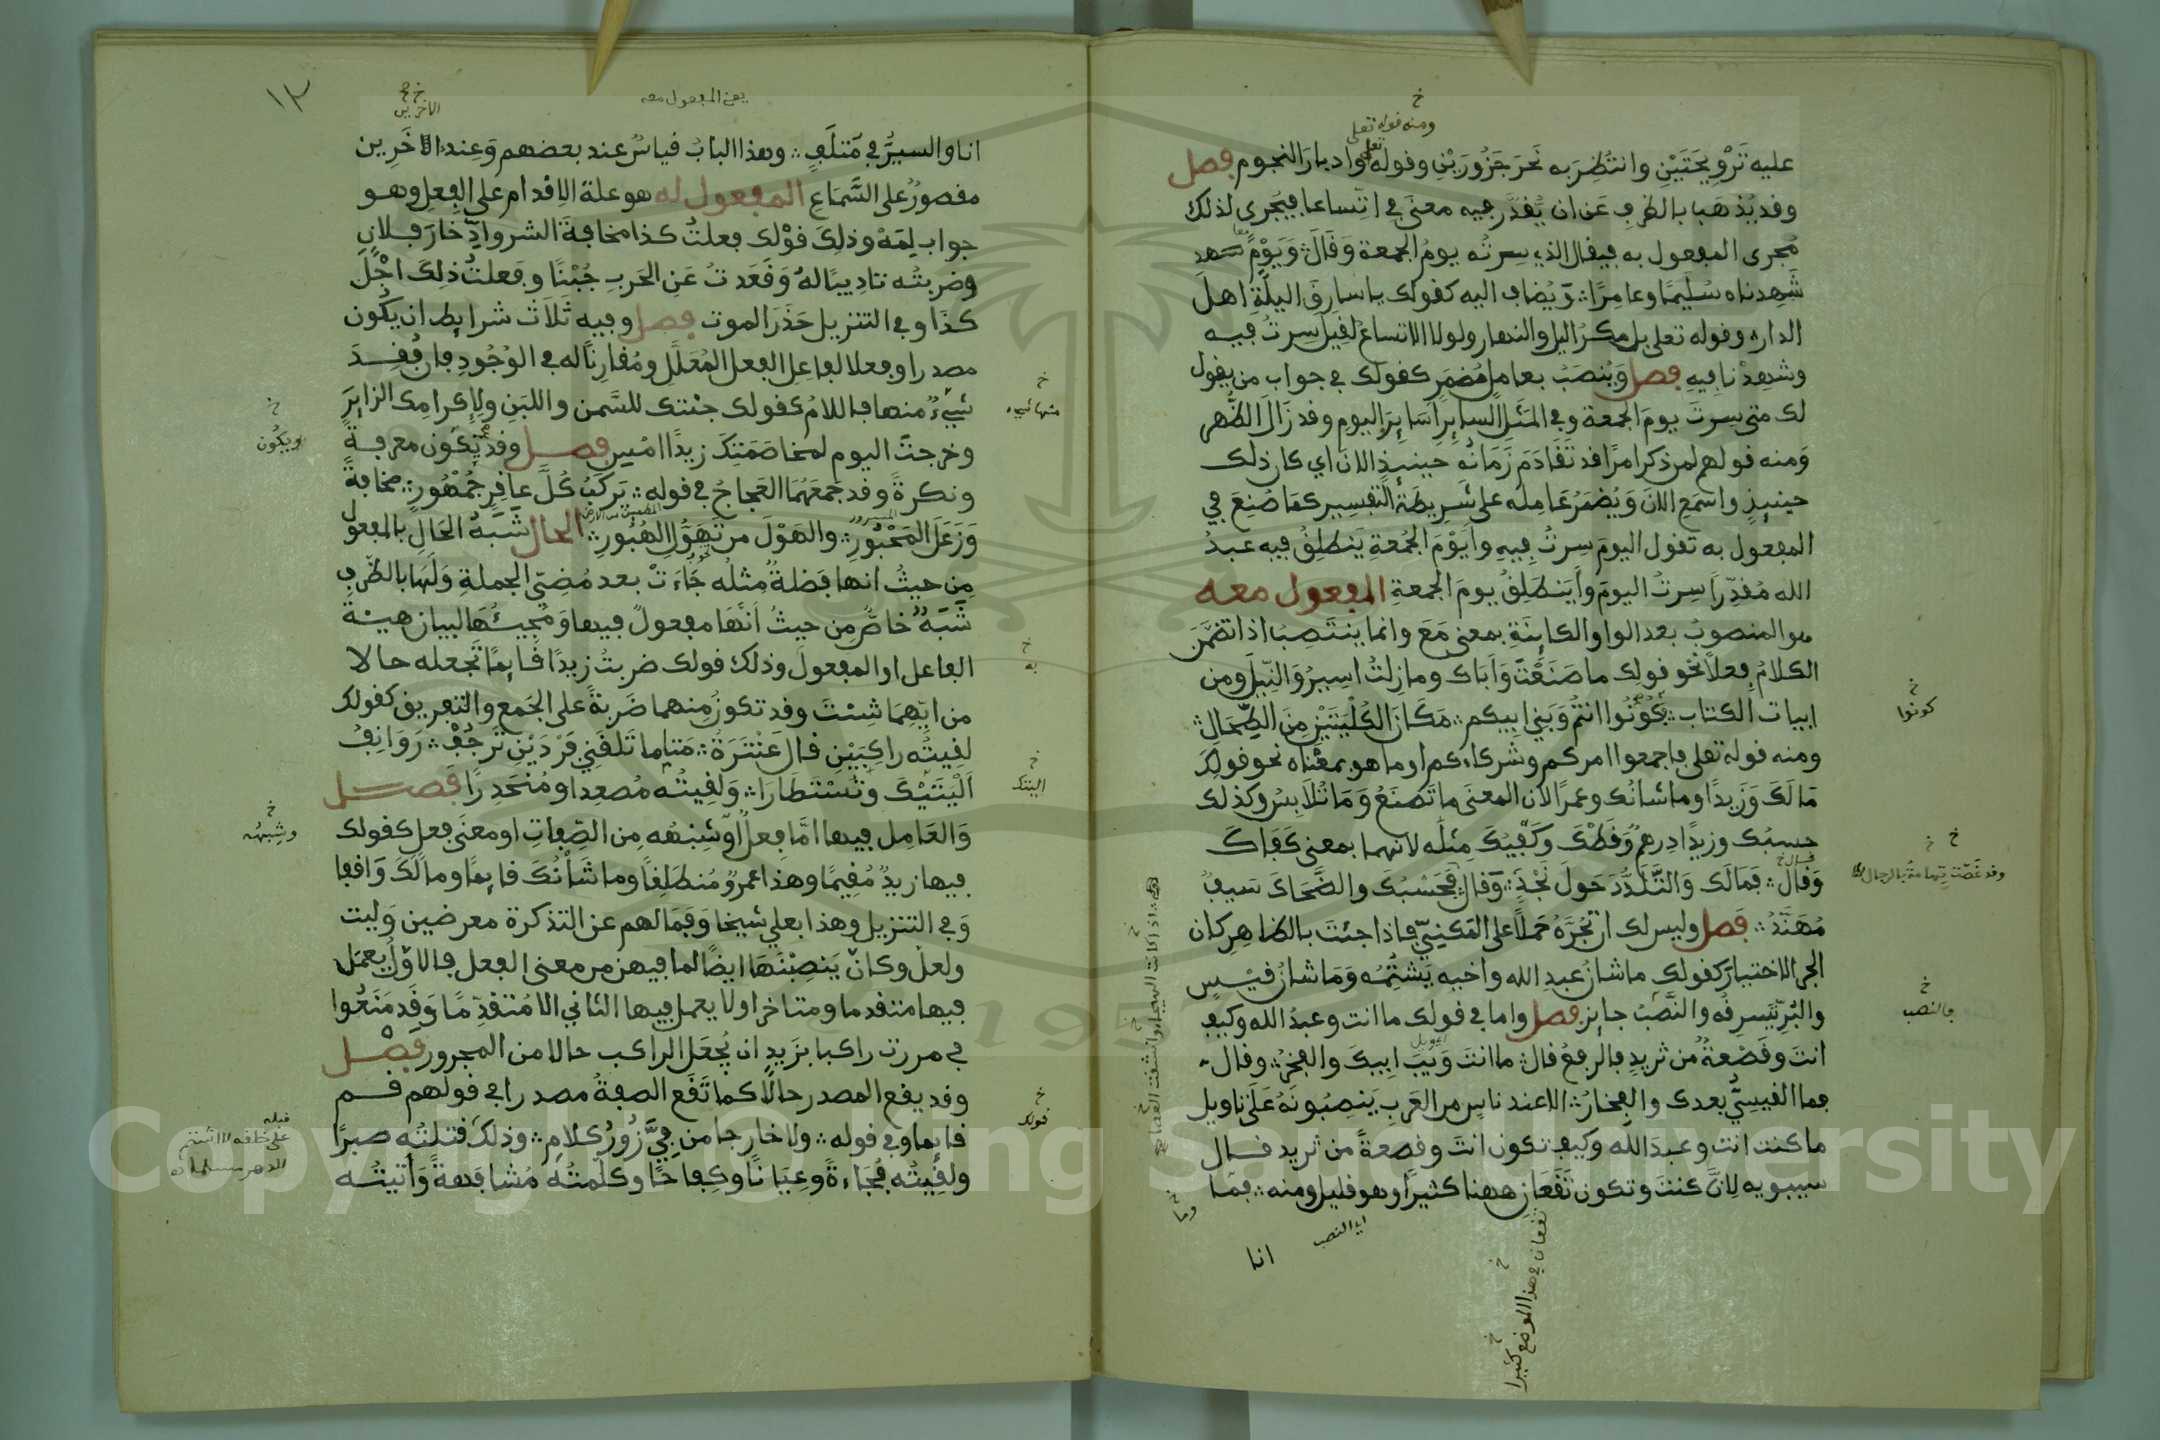 خ
ومنه قوله تعلى
عليه تَرْوِيحَتَيْنِ وانتُظِرَ به نَحرَ جَزُورَيْنِ وقوله تعلى وادبارَ النجوم فصل
وقد يُذهَبا بالظرف عَن ان يُقدَّر فيه معنَى في اتّساعا فيُجرى لذلك
مُجرى المفعول به فيقال الذي سِرتُه يومُ الجمعة وَقَالَ ؞ وَيَوْمٍ
شَهِدناه سُلَيمًا وعامِرًا ؞ وّيُضاف اليه كقولك يا سارقَ اليلَةِ اهلَ
الدار ؞ وقوله تعلى بل مكرُ اليل والنهار ولولا الاتساعُ لقيل سِرتُ فيه
وشهِدْنا فيهِ فصل وَيُنصَبُ بعامل مُضمَرٍ كقولك في جواب من يقول
لك متى سرتَ يومَ الجمعة وفي المثَل السايرِ اَسَايِرَ اليومِ وقد زَالَ الظُّهر
وَمنه قولهم لمن ذكر امرًا قد تَقَادَمَ زَمَانُه حينيذٍ الانَ اي كان ذلك
حينيِذٍ واسْمَعِ الانَ وَيُضمَرُ عَامِلُه على شَرِيطَةِ التفسِير كمَا صُنِعَ في
المفعول به تقول اليومَ سِرتُ فيهِ واَيَوْمَ الجُمعةِ يَنطَلِقُ فيه عبدُ
الله مُقدِّرًا سِرتُ اليومَ واَيَنطَلِقُ يومَ الجمعةِ المفعول معه
هو المنصوبُ بعد الواو الكاينَةِ بمعنى مَعَ وانما ينتَصِبُ اذا تضمَّنَ
الكلامُ فِعلًا نحو قولك ما صَنَعْتَ وَاَبَاك وما زِلتُ اسِيرُ وَالنِّيلَ ومن
ابيات الكتاب ؞ كُونُوا انتُم وَبَنِي ابِيكم ؞ مَكَانَ الكُلْيَتَيْنِ مِنَ الطِّحَالِ ؞
ومنه قوله تعلى فاجمعوا امركم وشركاءكم او ما هو بمعناه نحو قولك
مَا لَكَ وَزَيدًا وما شانُك وعمرًا لان المعنَى ما تَصنَعُ وَمَا تُلَابِسُ وكذلك
حسبُك وزيدًا درهمٌ وَقَطْكَ وكَفْيُكَ مِثلُه لانهما بمعنى كَفَاكَ
وَقال ؞ فَمَالَك وَالتَّلَدُّدَ حَولَ نَجْدٍ ؞ وَقال ؞ فَحَسْبُكَ والضَّحاكَ سَيفٌ
مُهَنَّدُ ؞ فصل وليس لك ان تجُرَّهُ حَملًا على المَكنِيّ فاذا جئتَ بالظاهِر كان
الجر الاختيارَ كقولك ما شانُ عبدِ الله واخيه يَشتُمُه وَمَا شانُ قيْسٍ
والبُرِّ يَسرِقُه والنَّصْبُ جايز فصل واما في قولك ما انت وعبدُ الله وكيف
انتَ وقَصْعةٌ من ثريدٍ فالرفعُ قال ؞ ما انتَ وَيبَ ابِيكَ والفخرُ ؞ وقال ؞
فما القيسِيُّ بعدك والفِخارُ ؞ الا عند ناسٍ من العَرب يَنصِبُونَهُ عَلَى تاويل
ما كنت انت وعبدَ الله وكيف تكون انتَ وقصعةً من ثريد قال
سيبويه لانَّ كنتَ وتكون تَقَعَان ههنا كثيرًا وهو قليل ومنه ؞ فمَا
انا
خ
كونوا
خ
وقد غَصّت تِهامةُ بالرجال
خ
فالنصب
خ
وما
اي النصب
تقعان في هذا الموضع كثيرا
اذا كانت الهيجاء وانشقت العصا
١٣
يعني المفعول معه
خ
الاخرين
انا والسيرُ في مَتلَفٍ ؞ وهذا البابُ قياسٌ عند بعضهم وَعِند الاخَرِين
مقصورٌ على السَّمَاعِ المفعول له هو علة الاِقدام على الفِعلِ وهو
جواب لِمَهْ وذلِكَ قوْلك فعلتُ كذا مخافةَ الشر وادِّخارَ فلانٍ
وضربتُه تادِيبًا لهُ وَقَعَدتُ عَنِ الحَربِ جُبْنًا وفَعلتُ ذلِكَ اجْلَ
كذَا وفي التنزيل حَذَرَ الموت فصل وفيه ثَلَاث شرايط ان يكُون
مصدرا وفعلا لفاعِل الفعل المُعَلَّل ومُقارِنًا له في الوُجُودِ فان فُقِدَ
شَيْءٌ منها فاللامُ كقولك جئتك للسَّمن واللبَنِ ولِإكرامِك الزايرَ
وخرجتَ اليوم لمخاصَمَتِكَ زيدًا امْسِ فصل وقد تكون معرفةً
ونكرةً وقد جَمَعَهُمَا العَجاجُ في قوله ؞ يَركَبُ كُلَّ عَاقِرٍ جُمْهُورِ ؞ مخافةً
وَزَعَلَ المَحْبُورِ ؞ والهَوْلَ من تَهَوُّلِ الهُبُورِ ؞ الحال شَبَهُ الحَالِ بالمفعول
مِن حيثُ انها فَضلةٌ مثلُه جَاءَتْ بعد مُضِيّ الجملةِ وَلَهَا بالظّرف
شَبَهٌ خاصٌّ مِن حيثُ اَنّها مفعولٌ فيها وَمَجِيئُهَا لبيان هيئة
الفاعل او المفعولَ وذلك قولك ضربتُ زيدًا قايمًا تَجعله حالا
من ايِّهِمَا شئتَ وقد تكونُ مِنهما ضَربةً على الجَمعِ والتفريق كقولك
لقِيتُه راكِبَيْنِ قال عَنْتَرَةُ ؞ مَتَى ما تَلقَنِي فَرْدَيْنِ تَرْجُفْ ؞ رَوَانِفُ
اَلْيَتَيْكَ وَتُسْتَطَارَا ؞ وَلَقِيتُه مُصعِدا ومُنحَدِرًا فصل
وَالعَامِل فيها امَّا فِعلٌ اوْ شِبْهُه مِن الصِّفاتِ او معنَى فِعلٍ كقولك
فيها زيدٌ مُقِيمًا وهذا عمرٌو مُنطَلِقًا وما شَأنُكَ قايمًا وما لَكَ وَاقِفا
وَفي التنزيل وهذا بعلي شيخا وَفَمَالهم عن التذكرة معرضين وَليت
ولعلّ وكانّ يَنصِبْنَهَا ايضًا لما فيهن من معنى الفعل فالاوّلُ يعمَل
فيها متقدما ومتاخرا ولا يعمل فيها الثاني الا مُتقدِّمًا وَقَد مَنَعُوا
في مررت راكبا بزَيدٍ ان يُجعَل الراكب حالا من المجرور فصل
وقد يقع المصدر حالًا كما تَقَع الصفةُ مصدرا في قولهم قم
قايما وفي قوله ؞ ولا خارجا من فِيَّ زُورُ كلامِ ؞ وذلك قتلتُه صبرًا
ولقِيتُه فُجَاءةً وعِيَانًا وكِفاحًا وكلّمتُه مُشافَهةً وَأتيتُه
خ
منها شيء
خ
ويكُون
خ
به
خ
اليتك
خ
وشِبهُه
خ
قولك
قبله
على حلفة لا اشتم
الدهر مسلما